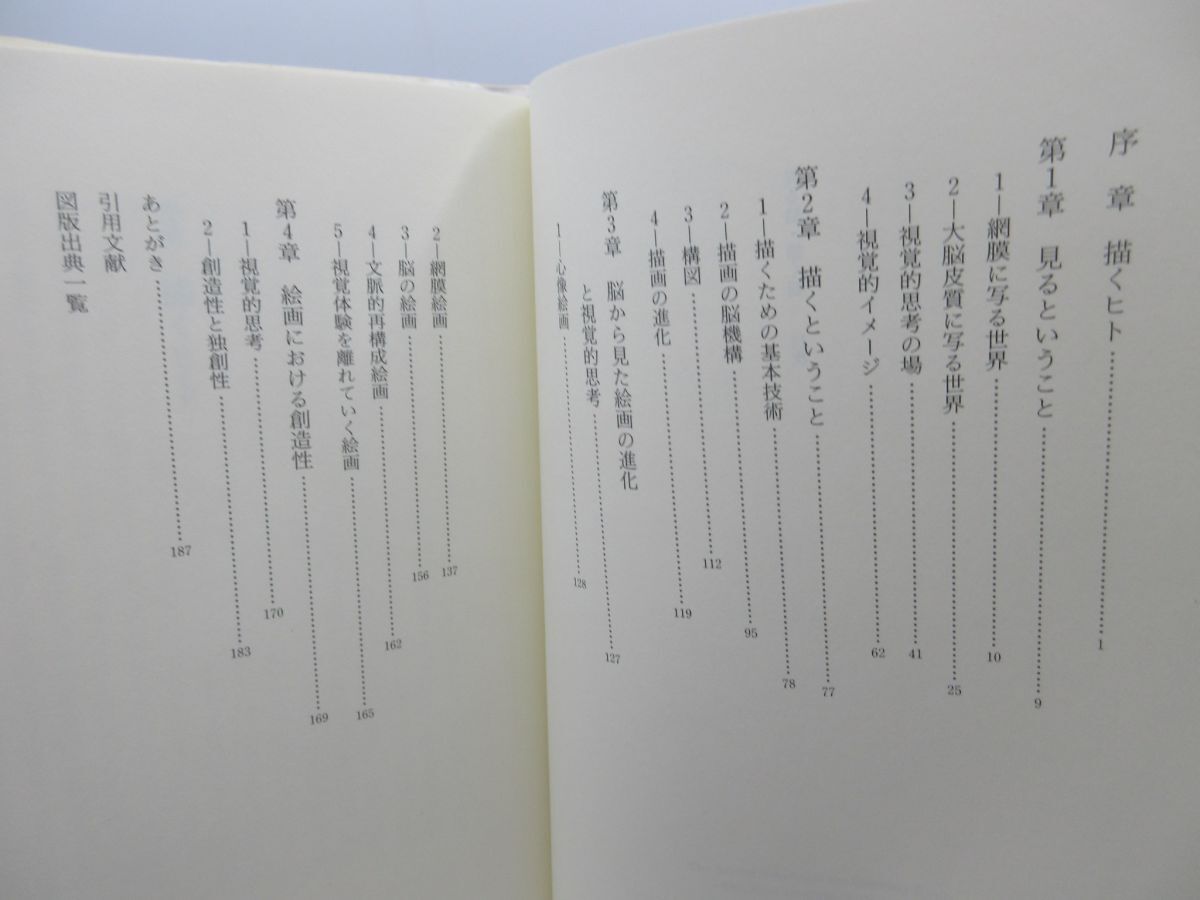 序 章 描くヒト………1
第1章 見るということ………9
1―網膜に写る世界………10
2―大脳皮質に写る世界………25
3―視覚的思考の場………41
4―視覚的イメージ………62
第2章 描くということ………77
1―描くための基本技術………78
2―描画の脳機構………95
3―構図………112
4―描画の進化………119
第3章 脳から見た絵画の進化
と視覚的思考………127
1―心像絵画………128
2―網膜絵画………137
3―脳の絵画………156
4―文脈的再構成絵画………162
5―視覚体験を離れていく絵画………165
第4章 絵画における創造性………169
1―視覚的思考………170
2―創造性と独創性………183
あとがき………187
引用文献
図版出典一覧